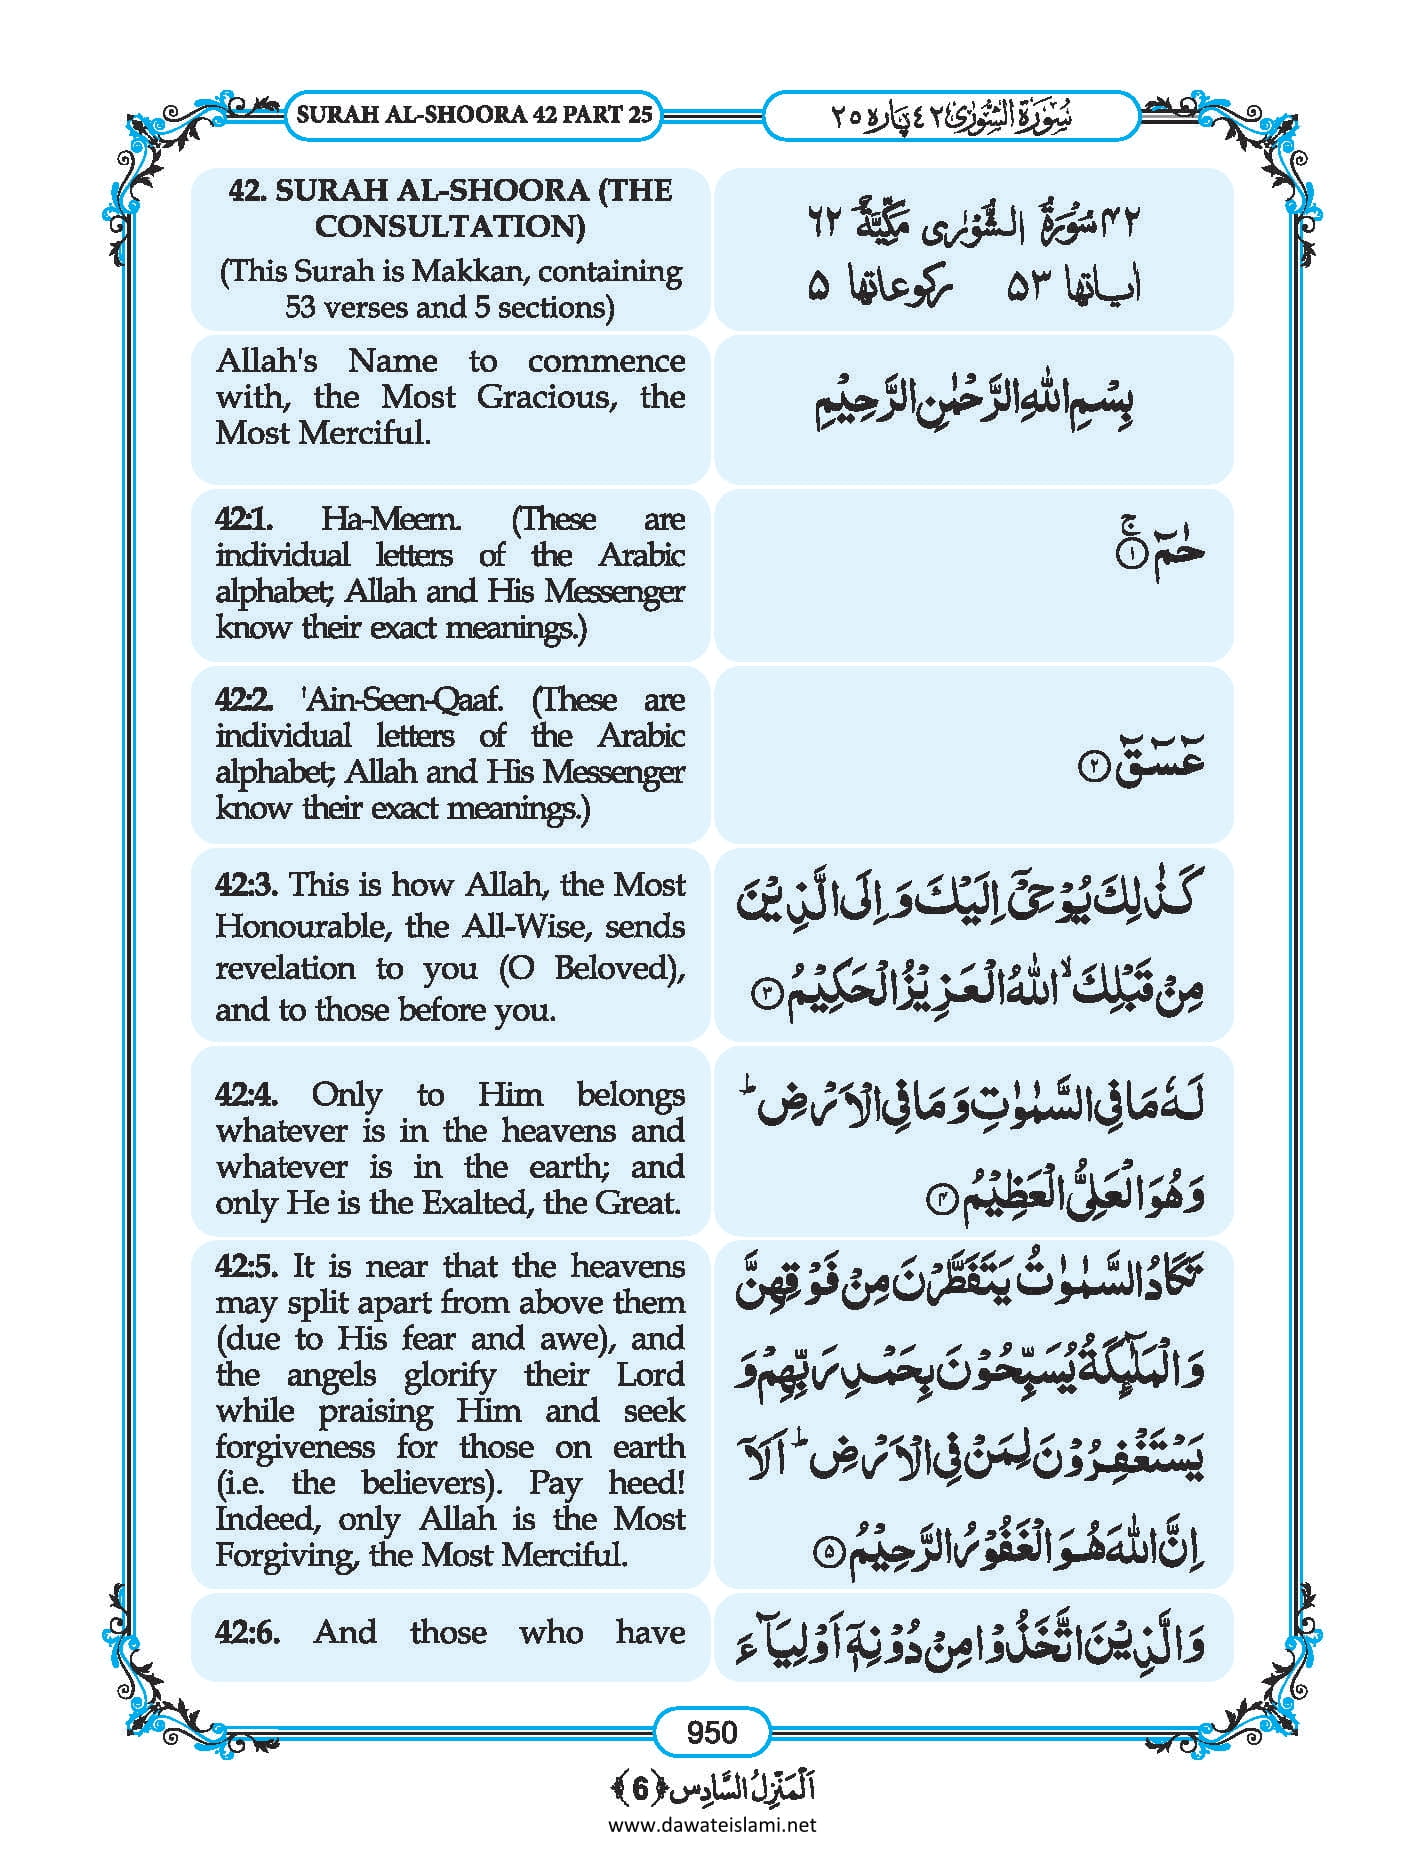 SURAH AL-SHOORA 42 PART 25
سُوْرَةُ الشُّوْرٰى ٤٢ پارہ ٢٥
42. SURAH AL-SHOORA (THE
CONSULTATION)
(This Surah is Makkan, containing
53 verses and 5 sections)
۴۲ سُوْرَةُ الشُّوْرٰى مَكِّيَّةٌ ۶۲
اٰیاتها ۵۳ رکوعاتها ۵
Allah's Name to commence
with, the Most Gracious, the
Most Merciful.
بِسْمِ اللّٰهِ الرَّحْمٰنِ الرَّحِيْمِ
42:1. Ha-Meem. (These are
individual letters of the Arabic
alphabet; Allah and His Messenger
know their exact meanings.)
حٰمٓ ۚ ﴿۱﴾
42:2. 'Ain-Seen-Qaaf. (These are
individual letters of the Arabic
alphabet; Allah and His Messenger
know their exact meanings.)
عٓسٓقٓ ﴿۲﴾
42:3. This is how Allah, the Most
Honourable, the All-Wise, sends
revelation to you (O Beloved),
and to those before you.
كَذٰلِكَ يُوْحِيْۤ اِلَيْكَ وَ اِلَى الَّذِيْنَ
مِنْ قَبْلِكَ ۙ اللّٰهُ الْعَزِيْزُ الْحَكِيْمُ ﴿۳﴾
42:4. Only to Him belongs
whatever is in the heavens and
whatever is in the earth; and
only He is the Exalted, the Great.
لَهٗ مَا فِي السَّمٰوٰتِ وَ مَا فِي الْاَرْضِ ؕ
وَ هُوَ الْعَلِيُّ الْعَظِيْمُ ﴿۴﴾
42:5. It is near that the heavens
may split apart from above them
(due to His fear and awe), and
the angels glorify their Lord
while praising Him and seek
forgiveness for those on earth
(i.e. the believers). Pay heed!
Indeed, only Allah is the Most
Forgiving, the Most Merciful.
تَكَادُ السَّمٰوٰتُ يَتَفَطَّرْنَ مِنْ فَوْقِهِنَّ
وَ الْمَلٰٓىِٕكَةُ يُسَبِّحُوْنَ بِحَمْدِ رَبِّهِمْ وَ
يَسْتَغْفِرُوْنَ لِمَنْ فِي الْاَرْضِ ؕ اَلَاۤ
اِنَّ اللّٰهَ هُوَ الْغَفُوْرُ الرَّحِيْمُ ﴿۵﴾
42:6. And those who have
وَ الَّذِيْنَ اتَّخَذُوْا مِنْ دُوْنِهٖۤ اَوْلِيَآءَ
950
اَلْمَنْزِلُ السَّادِس ﴿6﴾
www.dawateislami.net